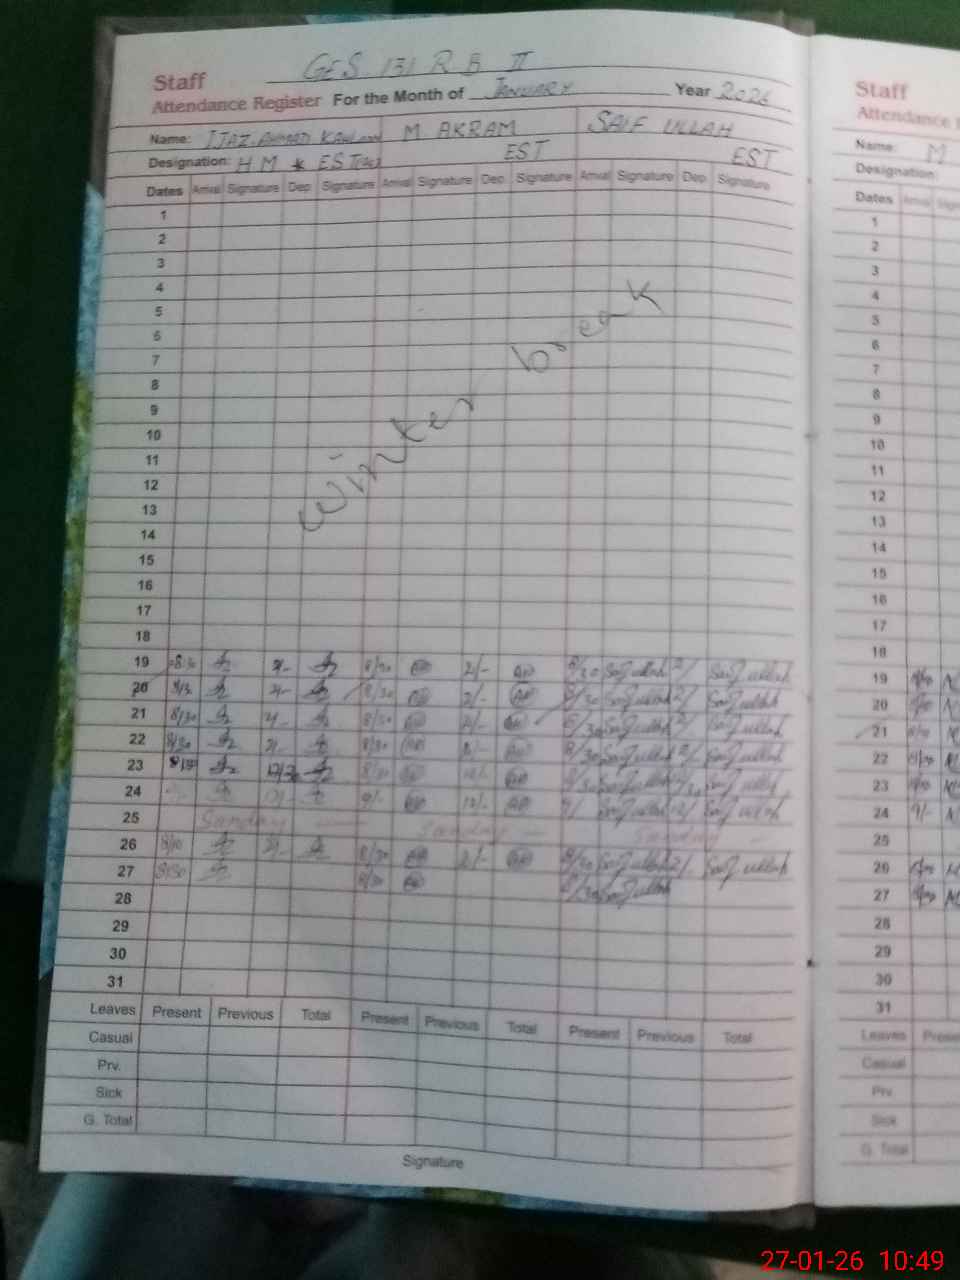 GES 131 RB II
Staff
Attendance Register For the Month of JANUARY Year 2026
Name: IJAZ AHMAD M AKRAM SAIF ULLAH
Designation: HM EST EST EST
Dates Arrival Signature Dep Signature Arrival Signature Dep Signature Arrival Signature Dep Signature
1
2
3
4
5
6
7
8
9
10
11
12
13
14
15
16
17
18
Winter break
19 8/30 2/- 8/30 2/- 8/30 Saif ullah 2/ Saif ullah
20 8/30 2/- 8/30 2/- 8/30 Saif ullah 2/ Saif ullah
21 8/30 2/- 8/30 2/- 8/30 Saif ullah 2/ Saif ullah
22 8/30 2/- 8/30 2/- 8/30 Saif ullah 2/ Saif ullah
23 8/30 12/30 8/30 8/30 Saif ullah Saif ullah
24 9/- 12/- 9/ Saif ullah 12/ Saif ullah
25 Sunday Sunday Sunday
26 8/30 2/- 8/30 2/- 8/30 Saif ullah 2/- Saif ullah
27 8/30 8/30 8/30 Saif ullah
28
29
30
31
Leaves Present Previous Total Present Previous Total Present Previous Total
Casual
Prv.
Sick
G. Total
Signature
Staff
Attendance
Name: M
Designation:
Dates Arrival
1
2
3
4
5
6
7
8
9
10
11
12
13
14
15
16
17
18
19
20
21
22
23
24 9/-
25
26
27
28
29
30
31
Leaves
Casual
Prv
Sick
G. Total
27-01-26 10:49